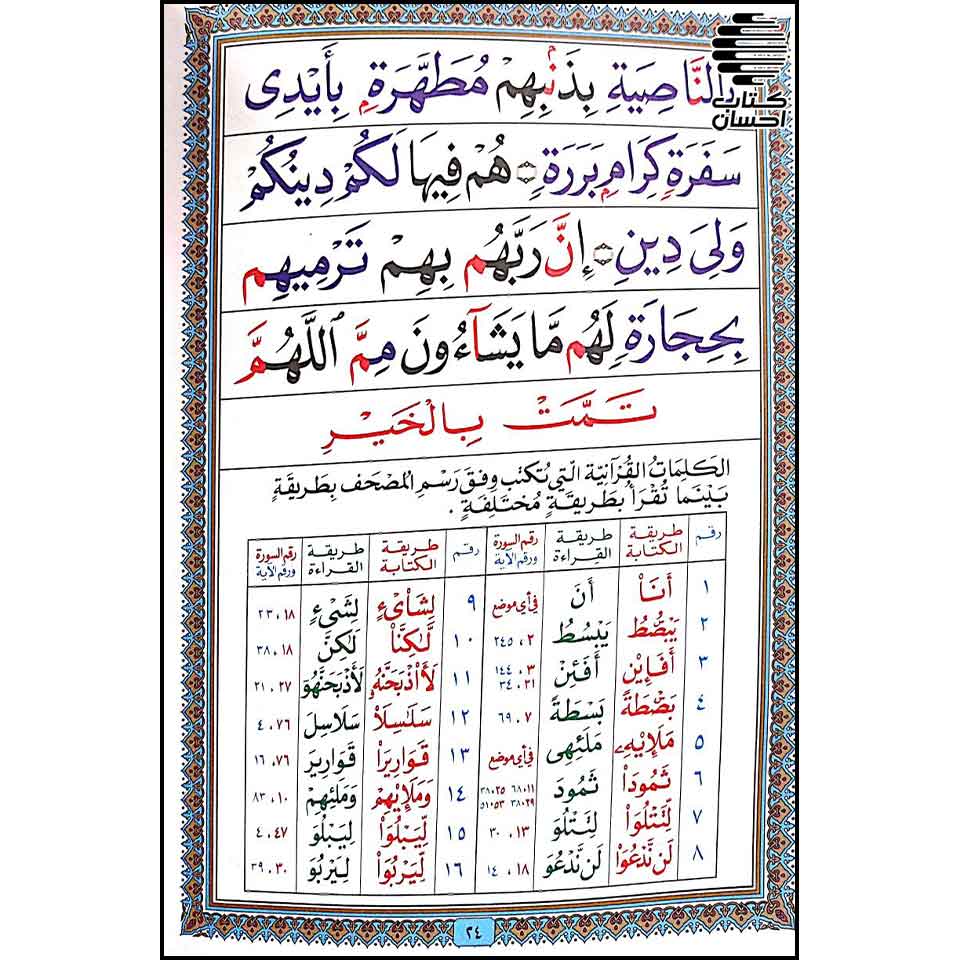 كتاب
احسان
بِالنَّاصِيَةِ بِذَنۢبِهِمْ مُطَهَّرَةٍۭ بِأَيْدِى
سَفَرَةٍ كِرَامٍۭ بَرَرَةٍ ۝ هُمْ فِيهَا لَكُمْ دِينُكُمْ
وَلِىَ دِينِ ۝ إِنَّ رَبَّهُم بِهِمْ تَرْمِيهِم
بِحِجَارَةٍ لَهُم مَّا يَشَآءُونَ مِمَّ ٱللَّهُمَّ
تَمَّتْ بِالْخَيْرِ
الكَلِمَاتُ القُرْآنِيَّة الَّتِي تُكْتَب وِفْقَ رَسْمِ المُصْحَف بِطَرِيقَةٍ
بَيْنَمَا تُقْرَأُ بِطَرِيقَةٍ مُخْتَلِفَةٍ .
رقم طريقة الكتابة طريقة القراءة رقم السورة ورقم الآية رقم طريقة الكتابة طريقة القراءة رقم السورة ورقم الآية
١ أَنَا۠ أَنَ في أي موضع ٩ لِشَا۟ىْءٍ لِشَىْءٍ ٢٣،١٨
٢ يَبْصُۜطُ يَبْسُطُ ٢، ٢٤٥ ١٠ لَّٰكِنَّا۠ لَٰكِنَّ ٣٨،١٨
٣ أَفَإِي۟ن أَفَئِنْ ٣، ١٤٤ ٣٤،٢١ ١١ لَأَا۟ذْبَحَنَّهُۥ لَأَذْبَحَنَّهُوَ ٢١،٢٧
٤ بَصْۜطَةً بَسْطَةً ٦٩،٧ ١٢ سَلَٰسِلَا۟ سَلَاسِلَ ٤،٧٦
٥ مَلَإِي۟هِۦ مَلَئِهِى في أي موضع ١٣ قَوَارِيرَا۟ قَوَارِيرَ ١٦،٧٦
٦ ثَمُودَا۟ ثَمُودَ ٦٨،١١ ٣٨،٢٥ ٣٨،٢٩ ٥١،٥٣ ١٤ وَمَلَإِي۟هِمْ وَمَلَئِهِمْ ٨٣،١٠
٧ لِّتَتْلُوَا۟ لِتَتْلُوَ ١٣، ٣٠ ١٥ لِّيَبْلُوَا۟ لِيَبْلُوَ ٤،٤٧
٨ لَن نَّدْعُوَا۟ لَن نَدْعُوَ ١٨، ١٤ ١٦ لِّيَرْبُوَا۟ لِيَرْبُوَ ٣٩،٣٠
٢٤